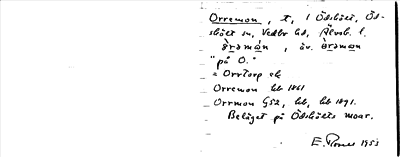 Orremon, t, i Ödskölt, Öd-
skölt sn, Vedbo hd, Älvsb. l.
òrəmán, äv. òrəmən
"på O."
= Orrtorp
Orremon 1861
Orrmon G52, 1891.
Beläget på Ödskölts moar.
E. 1953